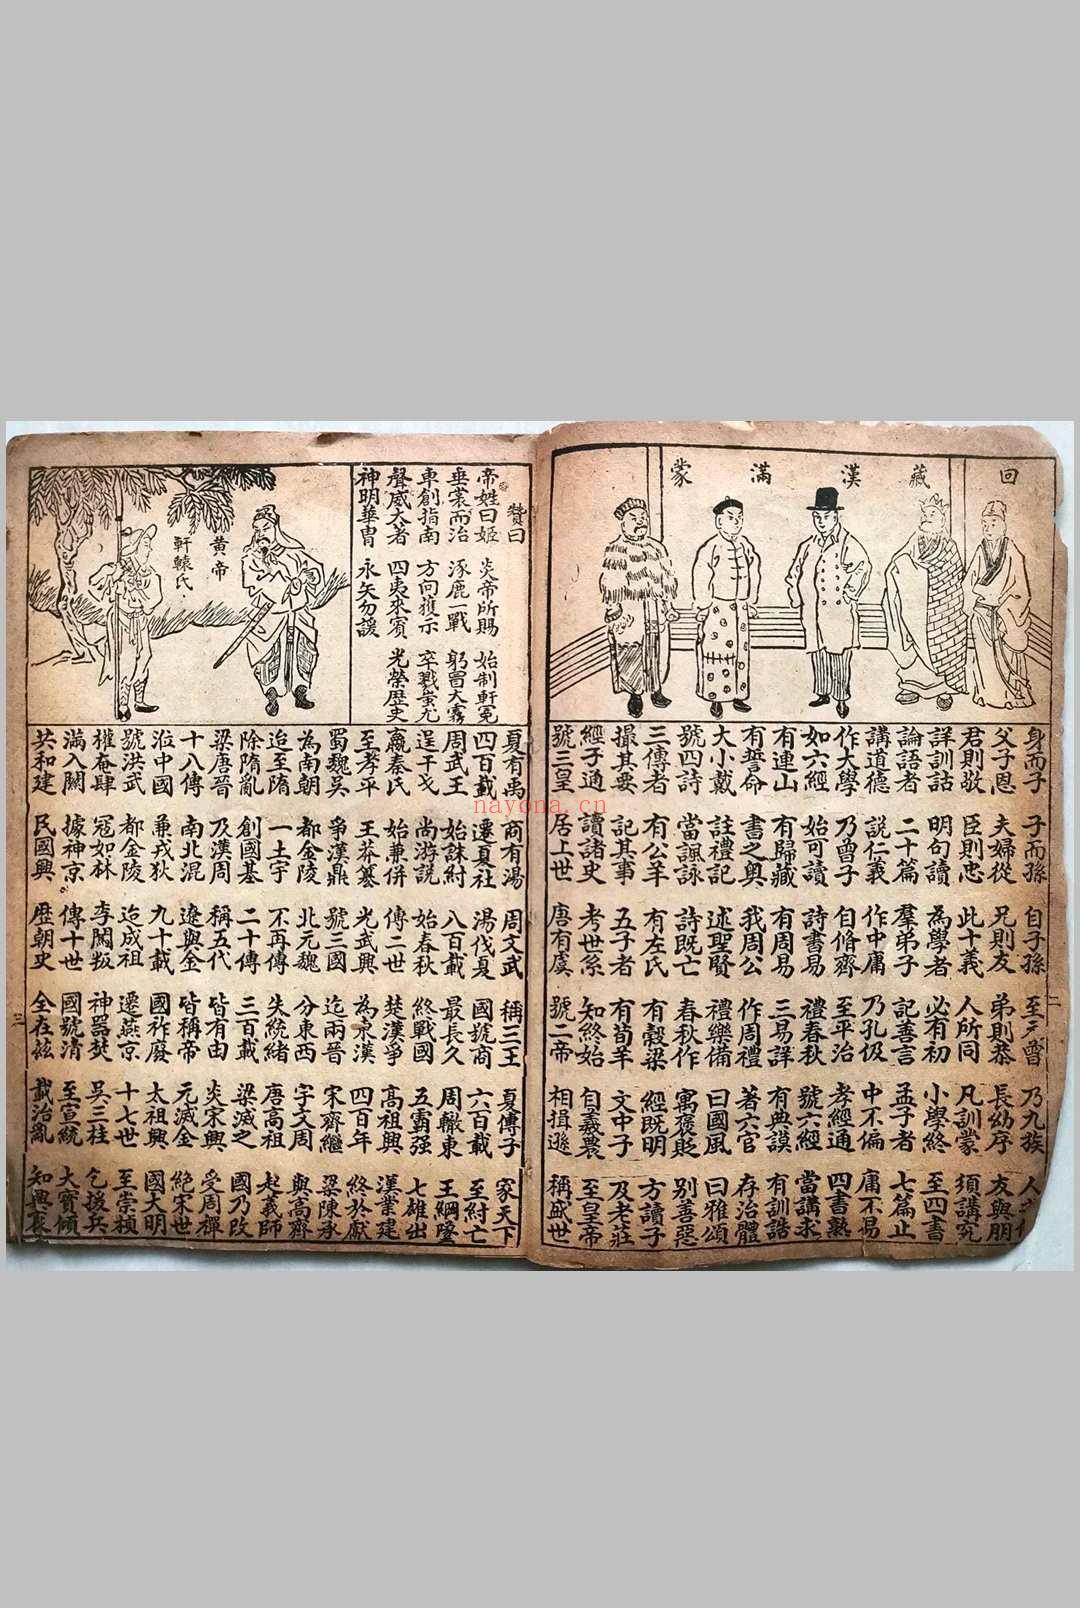 回藏漢滿蒙
身而子 子而孫 自子孫 至元曾 乃九族 人
父子恩 夫婦從 兄則友 弟則恭 長幼序 友與朋
君則敬 臣則忠 此十義 人所同 凡訓蒙 須講究
詳訓詁 明句讀 為學者 必有初 小學終 至四書
論語者 二十篇 羣弟子 記善言 孟子者 七篇止
講道德 說仁義 作中庸 乃孔伋 中不偏 庸不易
作大學 乃曾子 自脩齊 至平治 孝經通 四書熟
如六經 始可讀 詩書易 禮春秋 號六經 當講求
有連山 有歸藏 有周易 三易詳 有典謨 有訓誥
有誓命 書之奧 我周公 作周禮 著六官 存治體
大小戴 註禮記 述聖賢 禮樂備 曰國風 曰雅頌
號四詩 當諷詠 詩既亡 春秋作 寓褒貶 別善惡
三傳者 有公羊 有左氏 有穀梁 經既明 方讀子
撮其要 記其事 五子者 有荀羊 文中子 及老莊
經子通 讀諸史 考世系 知終始 自羲農 至皇帝
號三皇 居上世 唐有虞 號二帝 相揖遜 稱盛世
二
贊曰
帝姓曰姬 炎帝所賜 始制軒冕
垂裳而治 涿鹿一戰 躬冒大霧
車創指南 方向獲示 卒戮蚩尤
聲威大著 四夷來賓 光榮歷史
神明華冑 永矢勿諼
黃帝
軒轅氏
夏有禹 商有湯 周文武 稱三王 夏傳子 家天下
四百載 遷夏社 湯伐夏 國號商 六百載 至紂亡
周武王 始誅紂 八百載 最長久 周轍東 王綱墜
逞干戈 尚游說 始春秋 終戰國 五霸强 七雄出
嬴秦氏 始兼併 傳二世 楚漢爭 高祖興 漢業建
至孝平 王莽篡 光武興 為東漢 四百年 終於獻
蜀魏吳 爭漢鼎 號三國 迄兩晉 宋齊繼 梁陳承
為南朝 都金陵 北元魏 分東西 宇文周 與高齊
迨至隋 一土宇 不再傳 失統緒 唐高祖 起義師
除隋亂 創國基 二十傳 三百載 梁滅之 國乃改
梁唐晉 及漢周 稱五代 皆有由 炎宋興 受周禪
十八傳 南北混 遼與金 皆稱帝 元滅金 絕宋世
涖中國 兼戎狄 九十載 國祚廢 太祖興 國大明
號洪武 都金陵 迨成祖 遷燕京 十七世 至崇禎
權庵肆 寇如林 李闖叛 神器焚 吳三桂 乞援兵
滿入關 據神京 傳十世 國號清 至宣統 大寶傾
共和建 民國興 歷朝史 全在茲 載治亂 知興衰
三
nayona.cn